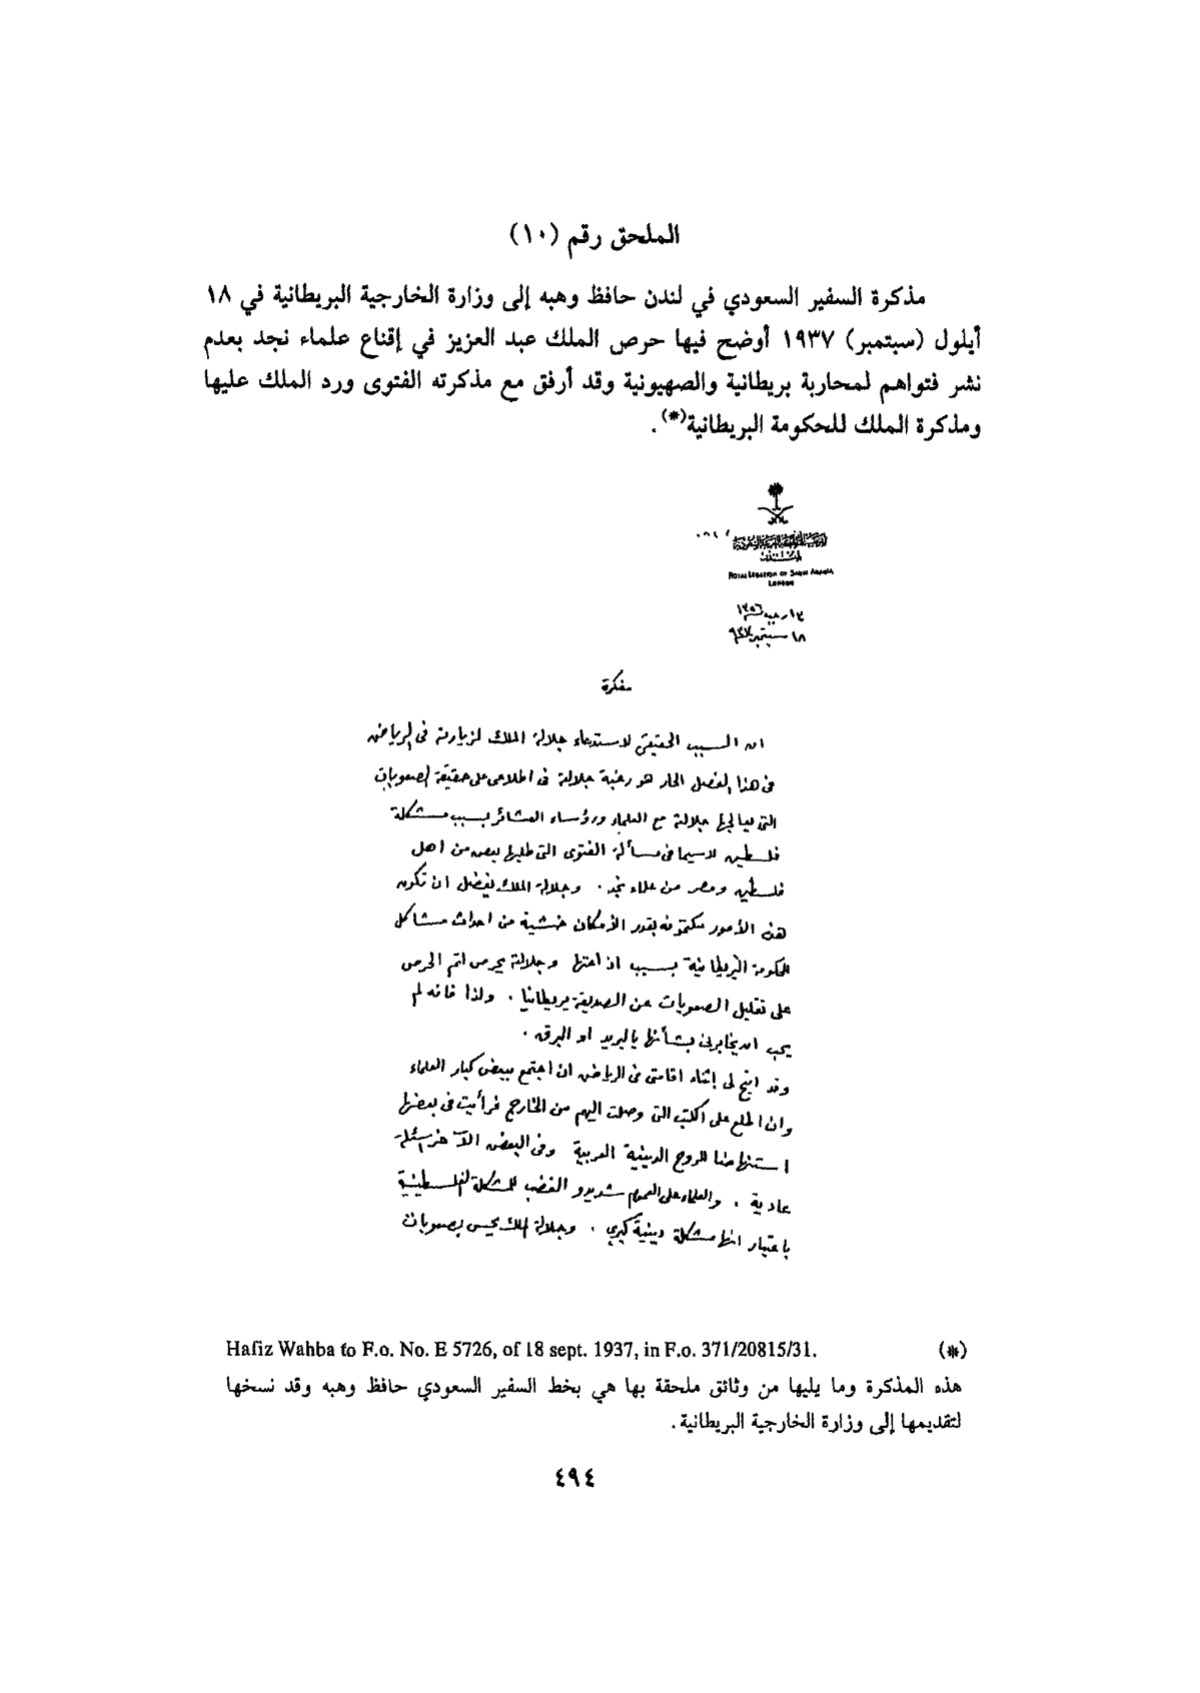 الملحق رقم (١٠)
مذكرة السفير السعودي في لندن حافظ وهبه إلى وزارة الخارجية البريطانية في ١٨
أيلول (سبتمبر) ١٩٣٧ أوضح فيها حرص الملك عبد العزيز في إقناع علماء نجد بعدم
نشر فتواهم لمحاربة بريطانية والصهيونية وقد أرفق مع مذكرته الفتوى ورد الملك عليها
ومذكرة الملك للحكومة البريطانية(*).
ROYAL LEGATION OF SAUDI ARABIA
LONDON
١٨ سبتمبر
مفكرة
ان السبب الحقيقي لاستدعاء جلالة الملك لزيارته فى الرياض
فى هذا الفصل الحار هو رغبة جلالته فى اطلاعى على حقيقة الصعوبات
التى يعالجها جلالته مع العلماء ورؤساء العشائر بسبب مشكلة
فلسطين لاسيما فى مسألة الفتوى التى طلبها بعض من اهل
فلسطين ومصر من علماء نجد . وجلالة الملك يفضل ان تكون
هذه الأمور مكتومة بقدر الأمكان خشية من احداث مشاكل
للحكومة البريطانية بسبب اذاعتها وجلالته يحرص اتم الحرص
على تقليل الصعوبات عن الصديقة بريطانيا . ولذا فانه لم
يحب ان يخابرنى بشأنها بالبريد او البرق .
وقد اتيح لى اثناء اقامتى فى الرياض ان اجتمع ببعض كبار العلماء
وان اطلع على الكتب التى وصلت اليهم من الخارج فرأيت فى بعضها
استنهاضا للروح الدينية العربية وفى البعض الآخر اسئلة
عادية . والعلماء على العموم شديدو الغضب للمشكلة الفلسطينية
باعتبار انها مشكلة دينية كبرى . وجلالة الملك يحس بصعوبات
(*) Hafiz Wahba to F.o. No. E 5726, of 18 sept. 1937, in F.o. 371/20815/31.
هذه المذكرة وما يليها من وثائق ملحقة بها هي بخط السفير السعودي حافظ وهبه وقد نسخها
لتقديمها إلى وزارة الخارجية البريطانية.
٤٩٤